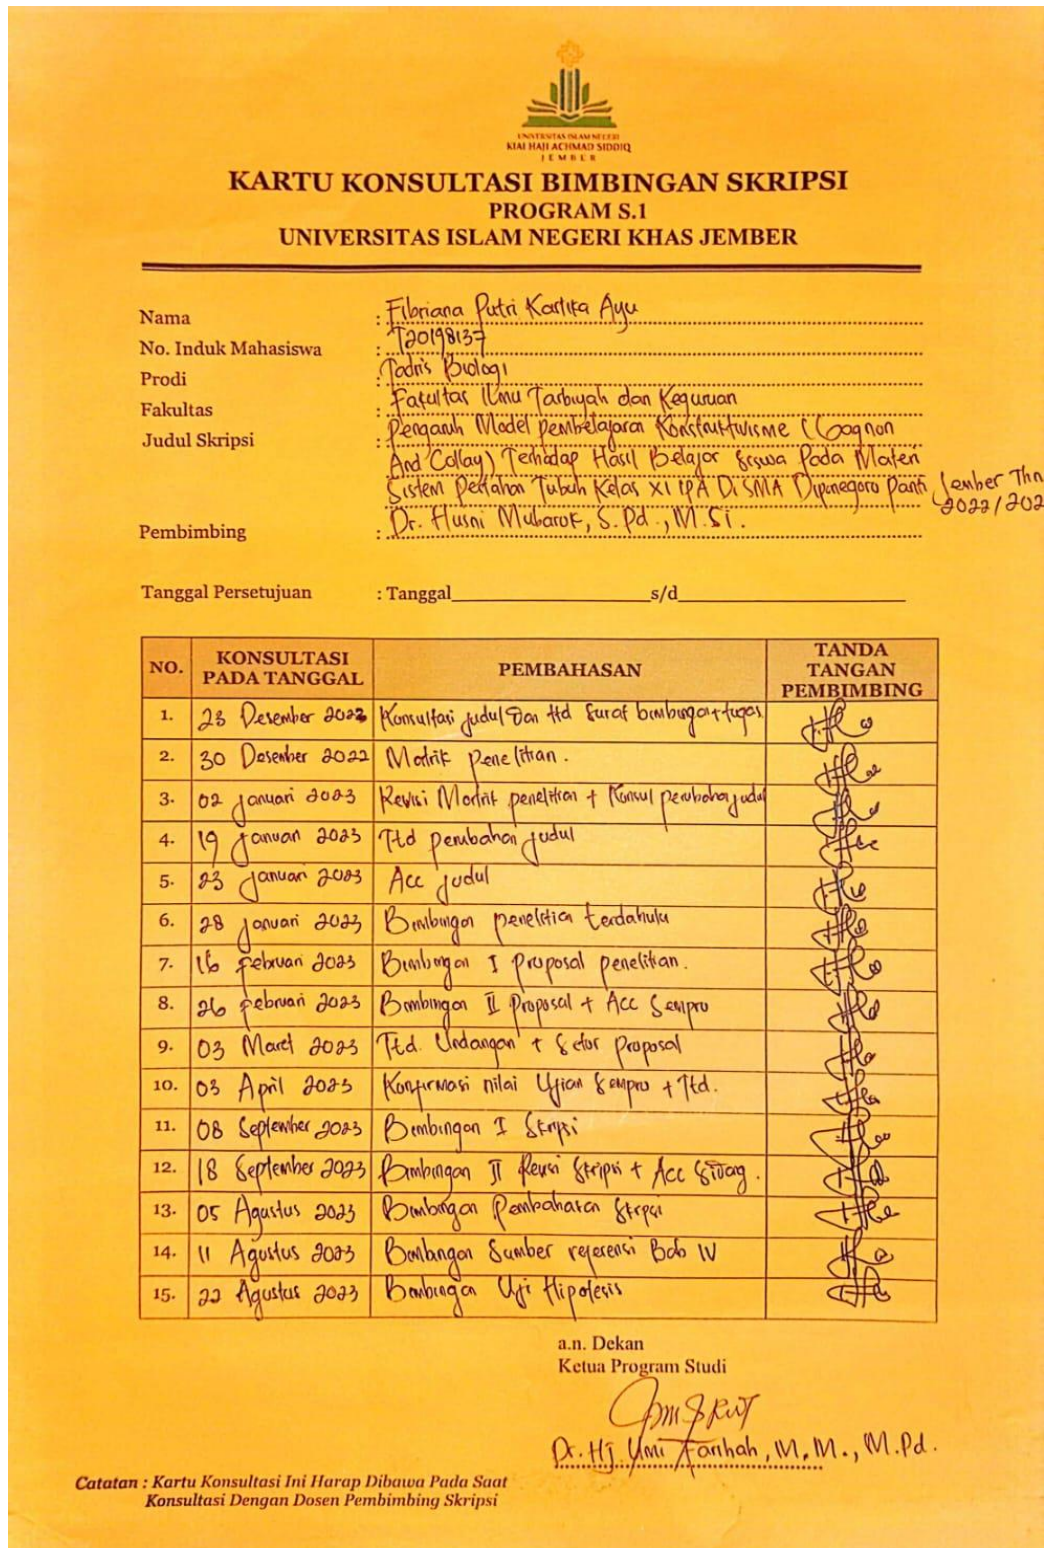 UNIVERSITAS ISLAM NEGERI
KIAI HAJI ACHMAD SIDDIQ
JEMBER
KARTU KONSULTASI BIMBINGAN SKRIPSI
PROGRAM S.1
UNIVERSITAS ISLAM NEGERI KHAS JEMBER
Nama : Fibriana Putri Kartika Ayu
No. Induk Mahasiswa : T20198137
Prodi : Tadris Biologi
Fakultas : Fakultas Ilmu Tarbiyah dan Keguruan
Judul Skripsi : Pengaruh Model pembelajaran Konstruktivisme (Gagnon
And Collay) Terhadap Hasil Belajar Siswa Pada Materi
Sistem Pertahan Tubuh Kelas XI IPA Di SMA Diponegoro Panti Jember Thn
2022/202
Pembimbing : Dr. Husni Mubarok, S.Pd., M.Si.
Tanggal Persetujuan : Tanggal s/d
NO. KONSULTASI PADA TANGGAL PEMBAHASAN TANDA TANGAN PEMBIMBING
1. 23 Desember 2022 Konsultasi judul Dan ttd Surat bimbingan+tugas
2. 30 Desember 2022 Matrik penelitian.
3. 02 januari 2023 Revisi Matrik penelitian + Konsul perubahan judul
4. 19 januari 2023 Ttd perubahan judul
5. 23 januari 2023 Acc judul
6. 28 januari 2023 Bimbingan penelitian terdahulu
7. 16 februari 2023 Bimbingan I proposal penelitian.
8. 26 februari 2023 Bimbingan II proposal + Acc Sempro
9. 03 Maret 2023 Ttd. Undangan + Setor proposal
10. 03 April 2023 Konfirmasi nilai Ujian Sempro + Ttd.
11. 08 September 2023 Bimbingan I Skripsi
12. 18 September 2023 Bimbingan II Revisi Skripsi + Acc Sidang.
13. 05 Agustus 2023 Bimbingan Pembahasan Skripsi
14. 11 Agustus 2023 Bimbingan Sumber referensi Bab IV
15. 22 Agustus 2023 Bimbingan Uji Hipotesis
a.n. Dekan
Ketua Program Studi
Dr. Hj. Umi Farihah, M.M., M.Pd.
Catatan : Kartu Konsultasi Ini Harap Dibawa Pada Saat
Konsultasi Dengan Dosen Pembimbing Skripsi